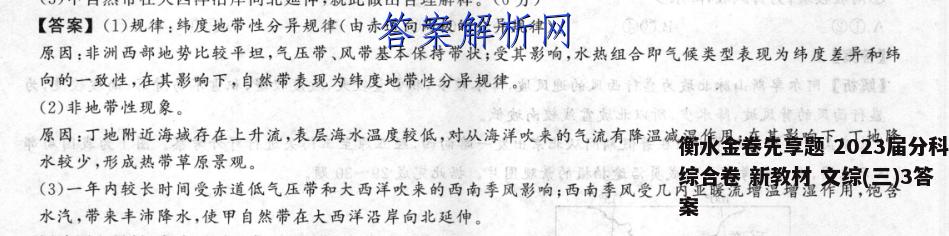 【答案】(1)规律:纬度地带性分异规律(由赤
答案解析网
原因:非洲西部地势比较平坦,气压带、风带基本保持带状;受其影响,水热组合即气候类型表现为纬度差异和纬
向的一致性,在其影响下,自然带表现为纬度地带性分异规律。
(2)非地带性现象。
原因:丁地附近海域存在上升流,表层海水温度较低,对从海洋吹来的气流有降温减湿作用,在其影响下,丁地降
水较少,形成热带草原景观。
衡水金卷先享题 2023届分科
综合卷 新教材 文综(三)3答
案
(3)一年内较长时间受赤道低气压带和大西洋吹来的西南季风影响;西南季风受几内亚暖流增温增湿作用,饱含
水汽,带来丰沛降水,使甲自然带在大西洋沿岸向北延伸。